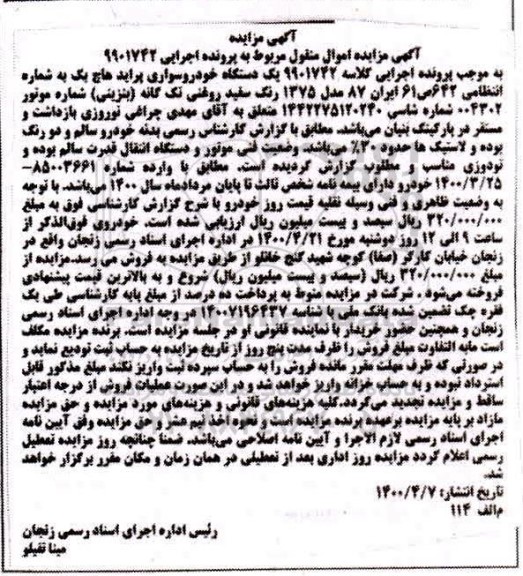 آگهی مزایده
آگهی مزایده اموال منقول مربوط به پرونده اجرایی ۹۹۰۱۷۴۲
به موجب پرونده اجرایی کلاسه ۹۹۰۱۷۴۲ یک دستگاه خودروسواری پراید هاچ بک به شماره
انتظامی ۶۴۲ص۶۱ ایران ۸۷ مدل ۱۳۷۵ رنگ سفید روغنی تک گانه (بنزینی) شماره موتور
۰۰۴۳۰۲ شماره شاسی ۱۴۴۲۲۷۵۱۲۰۲۴۰ متعلق به آقای مهدی چراغی نوروزی بازداشت و
مستقر در پارکینگ بنیان می‌باشد. مطابق با گزارش کارشناس رسمی بدنه خودرو سالم و دو رنگ
بوده و لاستیک ها حدود ۲۰٪ می‌باشد. وضعیت فنی موتور و دستگاه انتقال قدرت سالم بوده و
تودوزی مناسب و مطلوب گزارش گردیده است. مطابق با وارده شماره ۸۵۰۰۳۶۶۱-
۱۴۰۰/۳/۲۵ خودرو دارای بیمه نامه شخص ثالث تا پایان مردادماه سال ۱۴۰۰ می‌باشد. با توجه
به وضعیت ظاهری و فنی وسیله نقلیه قیمت روز خودرو با شرح گزارش کارشناسی فوق به مبلغ
۳۲۰/۰۰۰/۰۰۰ ریال سیصد و بیست میلیون ریال ارزیابی شده است. خودروی فوق‌الذکر از
ساعت ۹ الی ۱۲ روز دوشنبه مورخ ۱۴۰۰/۴/۲۱ در اداره اجرای اسناد رسمی زنجان واقع در
زنجان خیابان کارگر (صفا) کوچه شهید گنج خانلو از طریق مزایده به فروش می رسد.مزایده از
مبلغ ۳۲۰/۰۰۰/۰۰۰ ریال (سیصد و بیست میلیون ریال) شروع و به بالاترین قیمت پیشنهادی
فروخته می‌شود . شرکت در مزایده منوط به پرداخت ده درصد از مبلغ پایه کارشناسی طی یک
فقره چک تضمین شده بانک ملی با شناسه ۱۴۰۰۷۱۹۶۴۳۷ در وجه اداره اجرای اسناد رسمی
زنجان و همچنین حضور خریدار با نماینده قانونی او در جلسه مزایده است. برنده مزایده مکلف
است مابه التفاوت مبلغ فروش را ظرف مدت پنج روز از تاریخ مزایده به حساب ثبت تودیع نماید و
در صورتی که ظرف مهلت مقرر مانده فروش را به حساب سپرده ثبت واریز نکند مبلغ مذکور قابل
استرداد نبوده و به حساب خزانه واریز خواهد شد و در این صورت عملیات فروش از درجه اعتبار
ساقط و مزایده تجدید می‌گردد.کلیه هزینه‌های قانونی و هزینه‌های مورد مزایده و حق مزایده
مازاد بر پایه مزایده برعهده برنده مزایده است و نحوه اخذ نیم عشر و حق مزایده وفق آیین نامه
اجرای اسناد رسمی لازم الاجرا و آیین نامه اصلاحی می‌باشد. ضمنا چنانچه روز مزایده تعطیل
رسمی اعلام گردد مزایده روز اداری بعد از تعطیلی در همان زمان و مکان مقرر برگزار خواهد
شد.
تاریخ انتشار: ۱۴۰۰/۴/۷
م‌الف ۱۱۴
رئیس اداره اجرای اسناد رسمی زنجان
مینا تقیلو